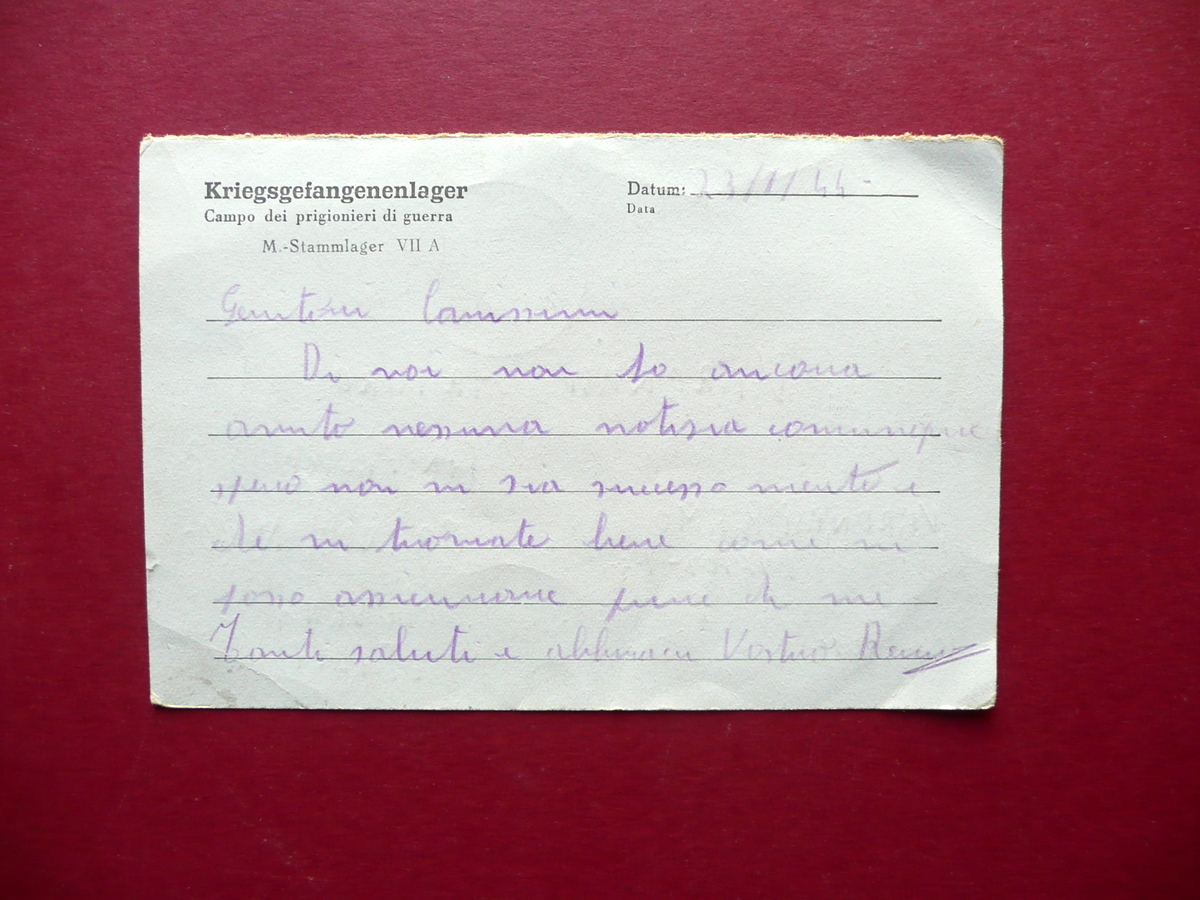 Kriegsgefangenenlager
Campo dei prigionieri di guerra
M.-Stammlager VII A
Datum: 23/1/44-
Data
Genitori Carissimi
Di voi non ho ancora
avuto nessuna notisia comunque
spero non vi sia sucesso niente e
che vi trovate bene come vi
posso assicurare pure di me
Tanti saluti e abbracci Vostro Remo